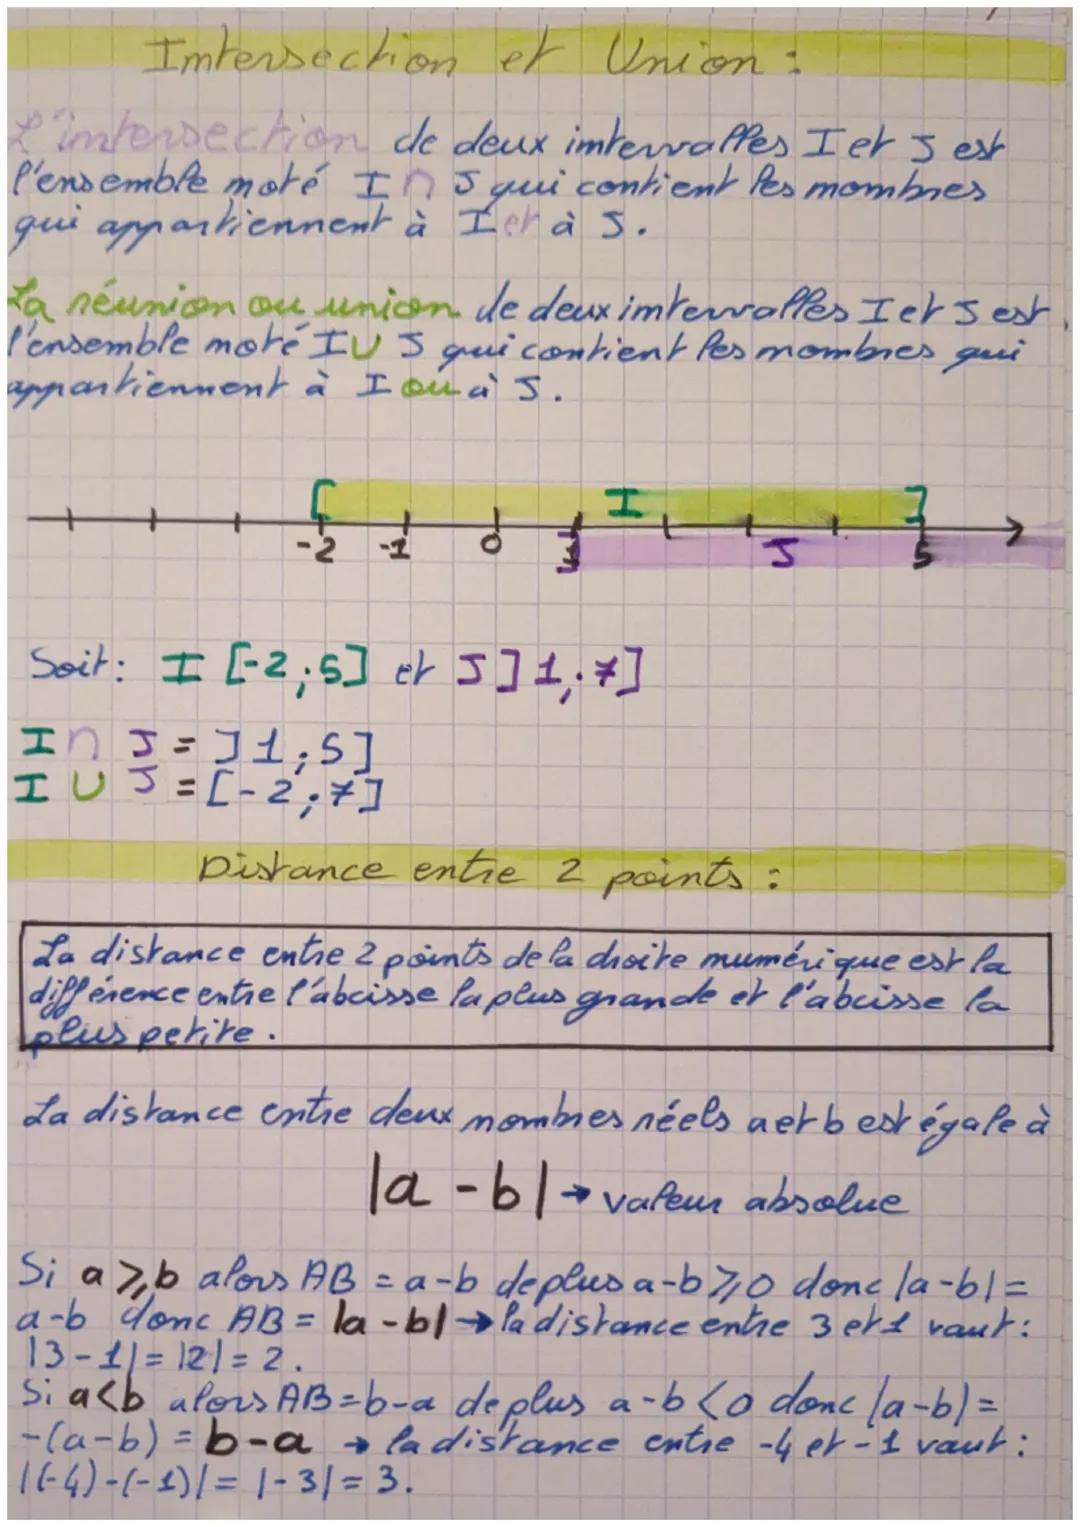 Intersection et Union :
L'intersection de deux intervalles I et J est
l'ensemble noté I ∩ J qui contient les nombres
qui appartiennent à I et à J.
La réunion ou union de deux intervalles I et J est
l'ensemble noté I U J qui contient les nombres qui
appartiennent à I ou à J.
[ I ]
-2 -1 0 1 J 5
Soit : I [-2 ; 5] et J ]1 ; 7]
I ∩ J = ]1 ; 5]
I U J = [-2 ; 7]
Distance entre 2 points :
La distance entre 2 points de la droite numérique est la
différence entre l'abcisse la plus grande et l'abcisse la
plus petite.
La distance entre deux nombres réels a et b est égale à
|a - b| → valeur absolue
Si a ⩾ b alors AB = a-b de plus a-b ⩾ 0 donc |a-b| =
a-b donc AB = |a-b| → la distance entre 3 et 1 vaut :
|3-1| = |2| = 2.
Si a<b alors AB = b-a de plus a-b < 0 donc |a-b| =
-(a-b) = b-a → la distance entre -4 et -1 vaut :
|(-4)-(-1)| = |-3| = 3.